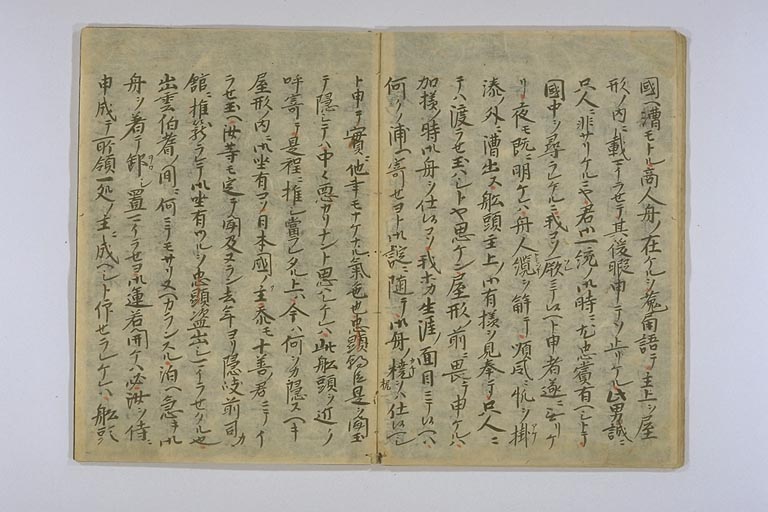 國ヘ漕モトル商人舟ノ在ケルヲ兎角語テ主上ヲ屋
形ノ内ニ載マイラセテ其後暇申テソ止リケル此男誠ニ
只人ニ非サリケルニヤ君御一統ノ御時ニ尤忠賞有ヘシトテ
國中ヲ尋ラレケルニ我コソ厥ニテ候ヘト申者遂ニ無リケ
リ夜モ既ニ明ケレハ舟人纜ヲ解テ順風ニ帆ヲ掛
湊ノ外ニ漕出ス舩頭主上ノ御有様ヲ見奉テ只人ニ
テハ渡ラセ玉ハシトヤ思ケン屋形ノ前ニ畏テ申ケルハ
加様ノ時御舟ヲ仕候コソ我ホカ生涯ノ面目ニテ候ヘ
何クノ浦ヘ寄セヨト御諚ニ随テ御舟ノ橈ヲハ仕候ヘシ
ト申テ實ニ他事モナケナル氣色也忠顕朝臣是ヲ聞玉
テ隠シテハ中々悪カリナント思ハレケレハ此舩頭ヲ近ク
呼寄テ是程ニ推シ當ラレタル上ハ今ハ何ヲカ隠スヘキ
屋形ノ内ニ御坐有コソ日本國ノ主忝モ十善ノ君ニテイ
ラセ玉ヘ汝等モ定テ聞及ヌラン去年ヨリ隠岐前司カ
館ニ推籠ラレテ御坐有ツルヲ忠顕盗出シマイラセタル也
出雲伯耆ノ間ニ何クニテモサリヌヘカランスル泊ヘ急キ御
舟ヲ着テ卸シ置マイラセヨ御運若開ケハ必汝ヲ侍ニ
申成テ所領一処ノ主ニ成ヘシト仰セラレケレハ舩頭